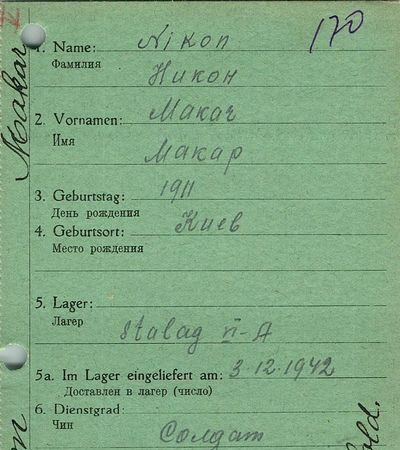 170
Makar
1. Name: Nikon
Фамилия
Никон
2. Vornamen: Макаr
Имя
Макар
3. Geburtstag: 1911
День рождения
4. Geburtsort: Киев
Место рождения
5. Lager:
Лагер
Stalag VI-A
5a. Im Lager eingeliefert am: 3.12.1942
Доставлен в лагер (число)
6. Dienstgrad:
Чин
Солдат